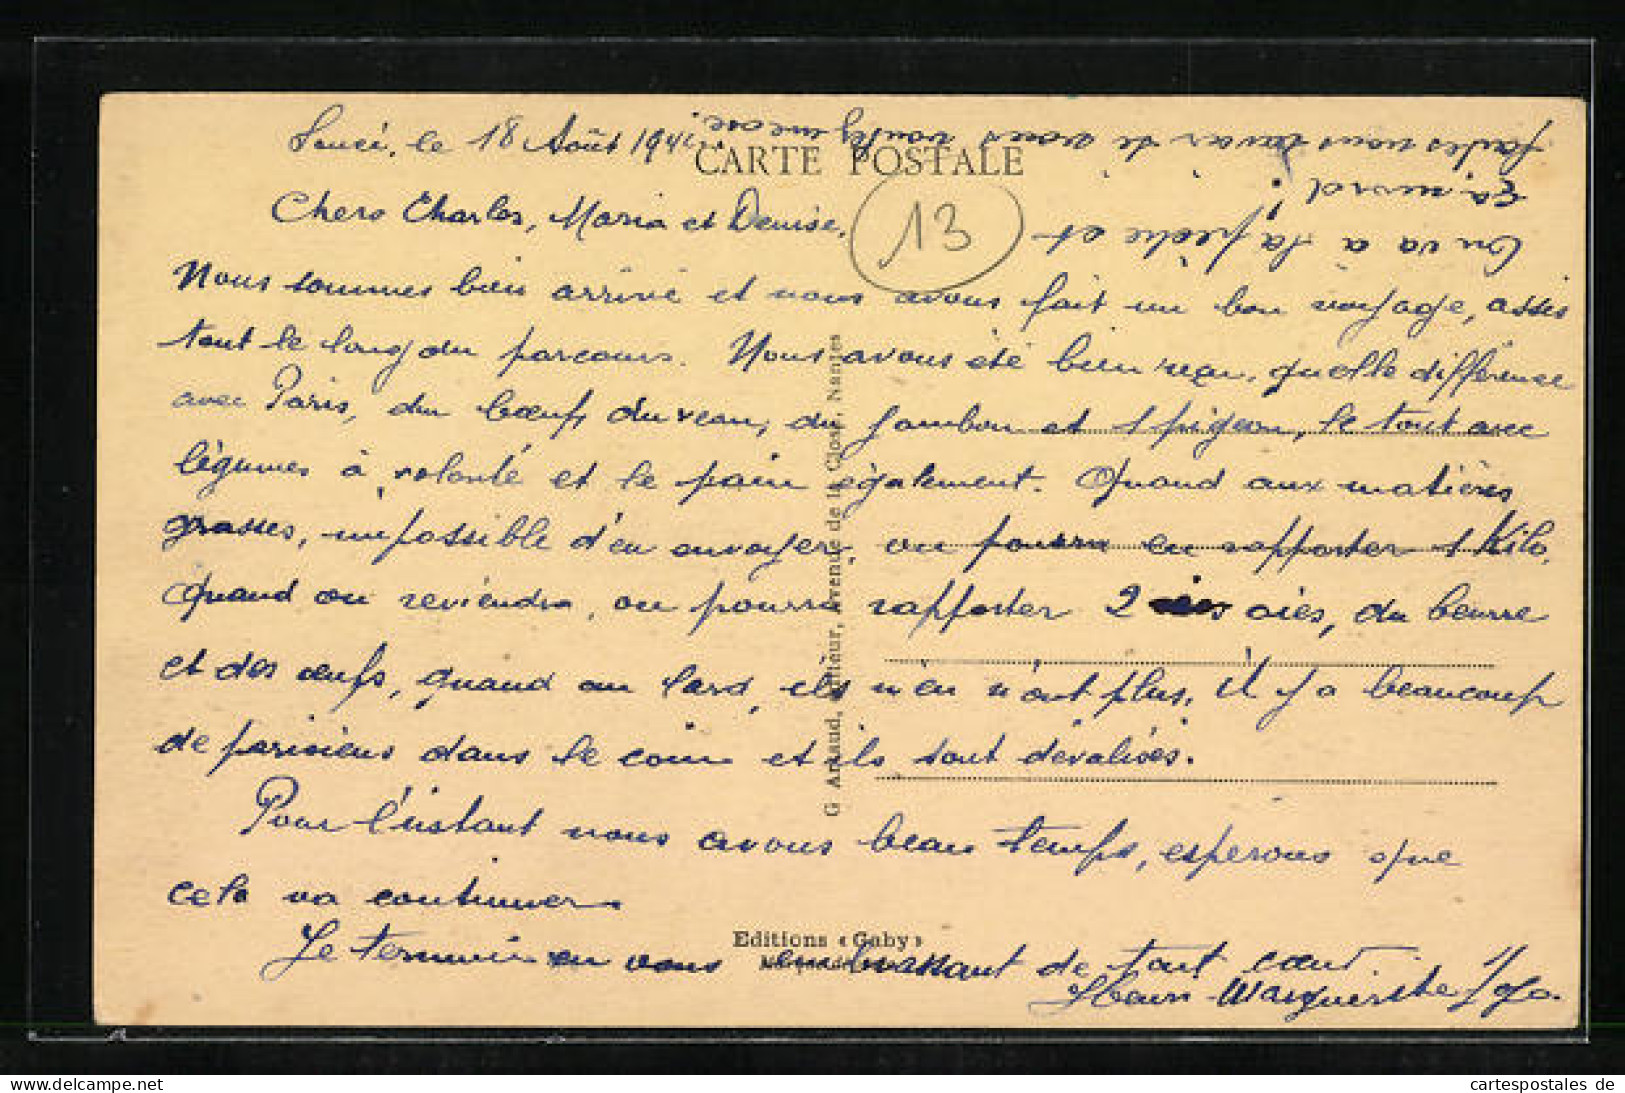 le 18 Août 194
CARTE POSTALE
13
Chers Charles, Maria et Denise,
Nous sommes bien arrivé et nous avons fait un bon voyage, assis
tout le long du parcours. Nous avons été bien reçu, quelle différence
avec Paris, du bœuf, du veau, du jambon et 1 pigeon, le tout avec
légumes à volonté et le pain également. Quand aux matières
grasses, impossible d'en envoyer, on pourra en rapporter 1 Kilo,
Quand on reviendra, on pourra rapporter 2 oies, du beurre
et des œufs, quand au lard, ils n'en n'ont plus, il y a beaucoup
de parisiens dans le coin et ils sont dévalisés.
Pour l'instant nous avons beau temps, esperons que
cela va continuer.
Je termine en vous embrassant de tout cœur.
Henri
On va à la pêche et
ça mord !
faites nous savoir si vous voulez
G Artaud, Editeur, Avenue de la Close, Nantes
Editions « Gaby »
cartespostales.de
cartespostales de